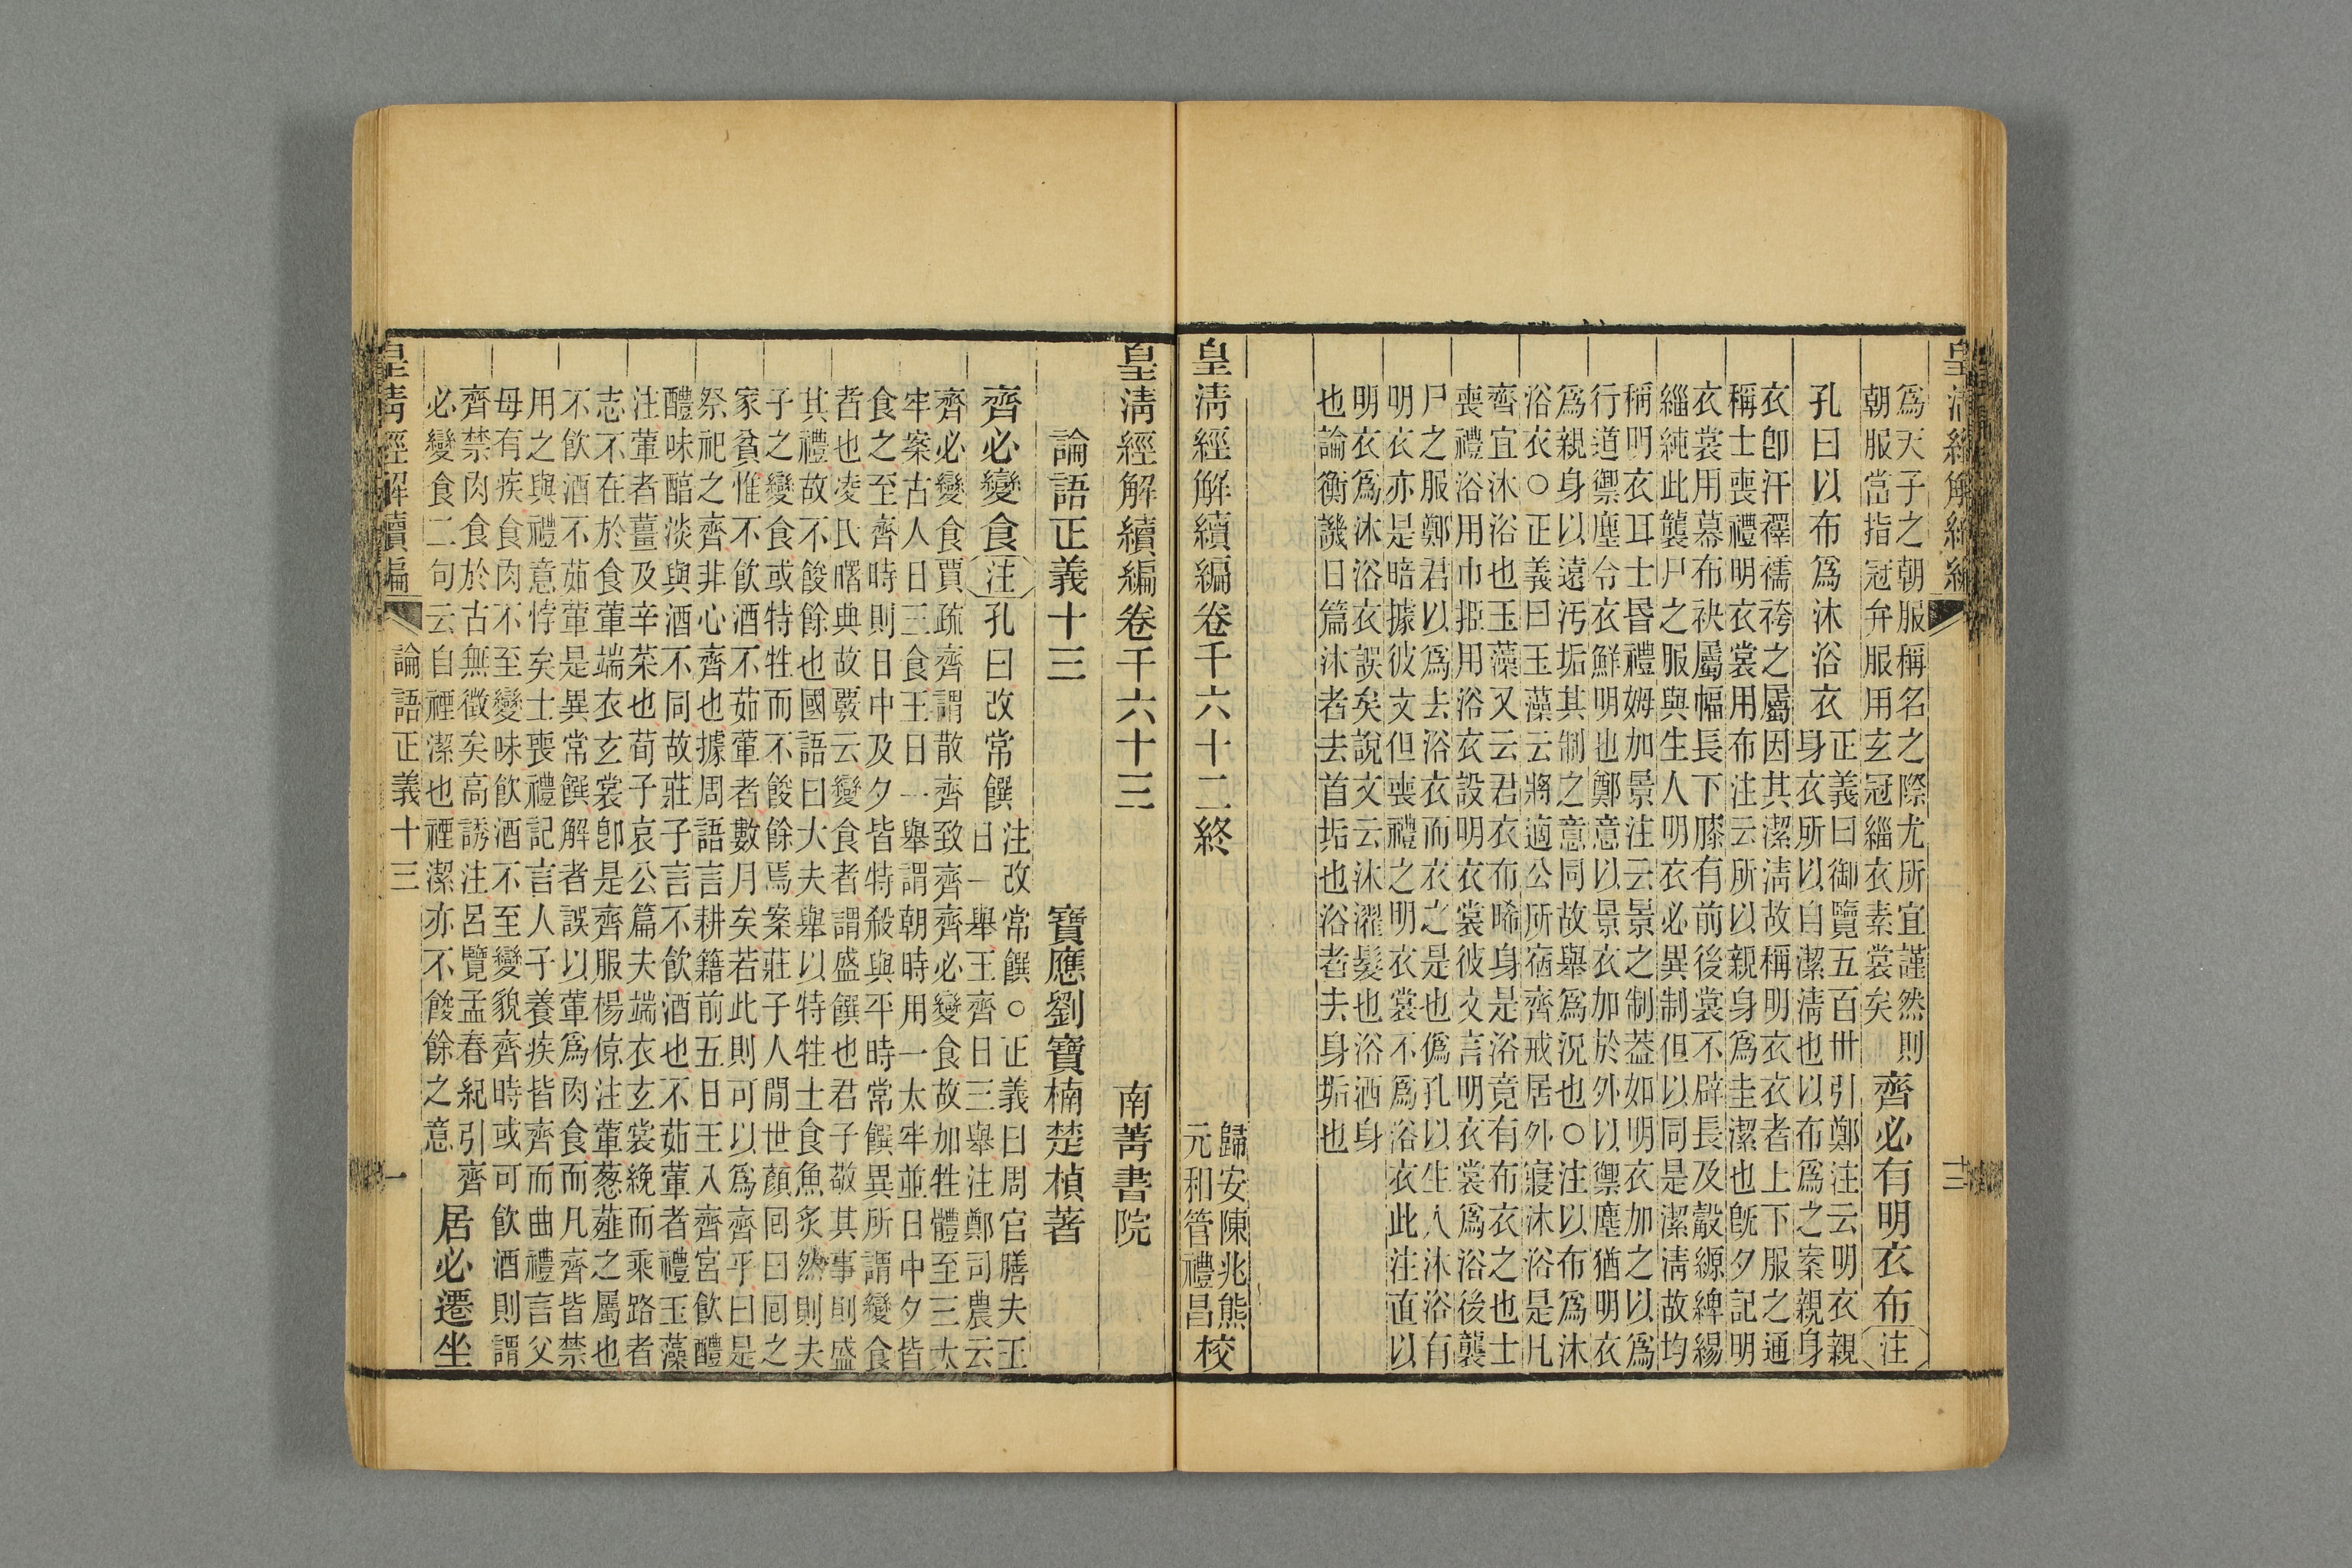 皇清經解續編 十三
爲天子之朝服稱名之際尤所宜謹然則
朝服當指冠弁服用玄冠緇衣素裳矣
齊必有明衣布注
孔曰以布爲沐浴衣
正義曰御覽五百卅引鄭注云明衣親
身衣所以自潔清也以布爲之案親身
衣卽汗襗襦袴之屬因其潔清故稱明衣衣者上下服之通
稱士喪禮明衣裳用布注云所以親身爲圭潔也旣夕記明
衣裳用幕布袂屬幅長下膝有前後裳不辟長及觳縓綼緆
緇純此襲尸之服與生人明衣必異制但以同是潔清故均
稱明衣耳士昬禮姆加景注云景之制葢如明衣加之以爲
行道禦塵令衣鮮明也鄭意以景衣加於外以禦塵猶明衣
爲親身以遠汚垢其制之意同故舉爲況也○注以布爲沐
浴衣○正義曰玉藻云將適公所宿齊戒居外寢沐浴是凡
齊宜沐浴也玉藻又云君衣布晞身是浴竟有布衣之也士
喪禮浴用巾挋用浴衣設明衣裳彼文言明衣裳爲浴後襲
尸之服鄭君以爲去浴衣而衣之是也僞孔以生人沐浴有
明衣亦是暗據彼文但喪禮之明衣裳不爲浴衣此注直以
明衣爲沐浴衣誤矣說文云沐濯髮也浴洒身
也論衡譏日篇沐者去首垢也浴者去身垢也
皇清經解續編卷千六十二終
歸安陳兆熊
元和管禮昌
校
皇清經解續編卷千六十三 南菁書院
論語正義十三 寶應劉寶楠楚楨著
齊必變食注孔曰改常饌
注改常饌○正義曰周官膳夫王
日一舉王齊日三舉注鄭司農云
齊必變食賈疏齊謂散齊致齊齊必變食故加牲體至三太
牢案古人日三食王日一舉謂朝時用一太牢並日中夕皆
食之至齊時則日中及夕皆特殺與平時常饌異所謂變食
者也凌氏曙典故覈云變食者謂盛饌也君子敬其事則盛
其禮故不餕餘也國語曰大夫舉以特牲士食魚炙然則夫
子之變食或特牲而不餕餘焉案莊子人閒世顏回曰回之
家貧惟不飮酒不茹葷者數月矣若此則可以爲齊乎曰是
祭祀之齊非心齊也據周語言耕籍前五日王入齊宮飮醴
醴味醅淡與酒不同故莊子言不飮酒也不茹葷者禮玉藻
注葷者薑及辛菜也荀子哀公篇夫端衣玄裳絻而乘路者
志不在於食葷端衣玄裳卽是齊服楊倞注葷葱薤之屬也
不飮酒不茹葷是異常饌解者誤以葷爲肉食而凡齊皆禁
用之與禮意悖矣士喪禮記言人子養疾皆齊而曲禮言父
母有疾食肉不至變味飮酒不至變貌齊時或可飮酒則謂
齊禁肉食於古無徵矣高誘注呂覽孟春紀引齊
必變食二句云自禋潔也禋潔亦不餕餘之意
居必遷坐
皇清經解續編 論語正義十三 一